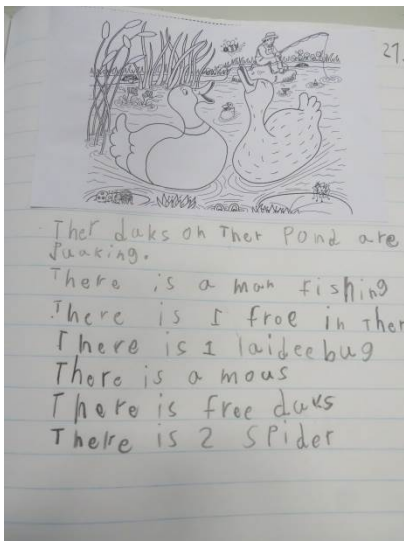 27.
Ther daks on Ther Pond are
suaking.
There is a man fishing
There is 1 froe in Ther
There is 1 laideebug
There is a mous
There is free daks
There is 2 Spider